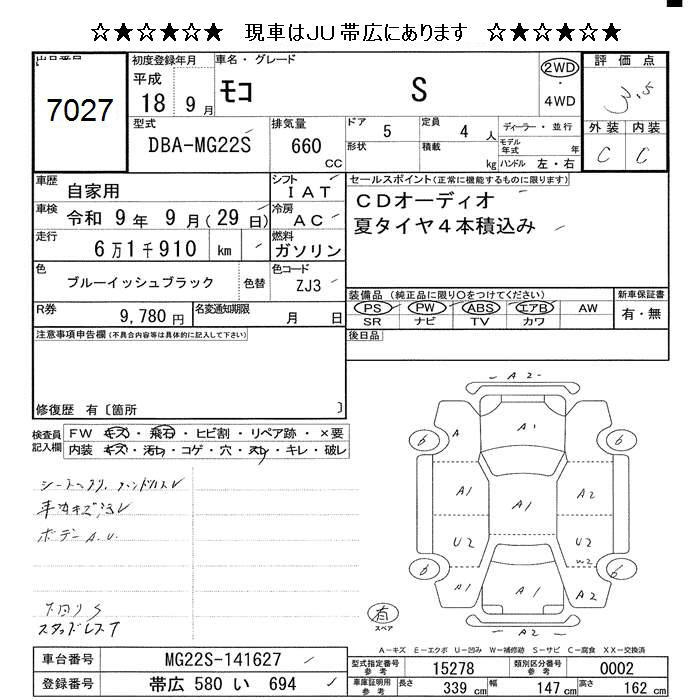 ☆★☆★☆★ 現車はJU帯広にあります ★☆★☆★☆
出品番号
7027
初度登録年月
平成
18 9 月
車名・グレード
モコ S
2WD
4WD
評価点
3.5
外装 内装
C C
型式
DBA-MG22S
排気量
660
cc
ドア 5
定員 4 人
形状
積載 kg
ディーラー・並行
モデル年式 年
ハンドル 左・右
車歴 自家用
シフト IAT
車検 令和 9 年 9 月(29 日)
冷房 AC
走行 6万1千910 km
燃料 ガソリン
セールスポイント(正常に機能するものに限ります)
CDオーディオ
夏タイヤ4本積込み
色 ブルーイッシュブラック
色替
色コード ZJ3
装備品(純正品に限り○をつけてください)
PS PW ABS エアB AW
SR ナビ TV カワ
新車保証書
有・無
R券 9,780 円
名変通知期限 月 日
後日品
注意事項申告欄(不具合内容等は具体的に記入して下さい)
修復歴 有〔箇所 〕
検査員記入欄
FW キズ・飛石・ヒビ割・リペア跡・×要
内装 キズ・汚れ・コゲ・穴・スレ・キレ・破レ
ボデー A.U.
下回り S
スタッドレス7
A2
A A1
6 6
A1 A1 A2
U2 U2
W2
6 6
A1 A1 A2
A2
有
スペア
A-キズ E-エクボ U-凹み W-補修跡 S-サビ C-腐食 XX-交換済
車台番号 MG22S-141627
登録番号 帯広 580 い 694
型式指定番号 参考 15278
類別区分番号 参考 0002
車庫証明用 参考 長さ 339 cm 幅 147 cm 高さ 162 cm